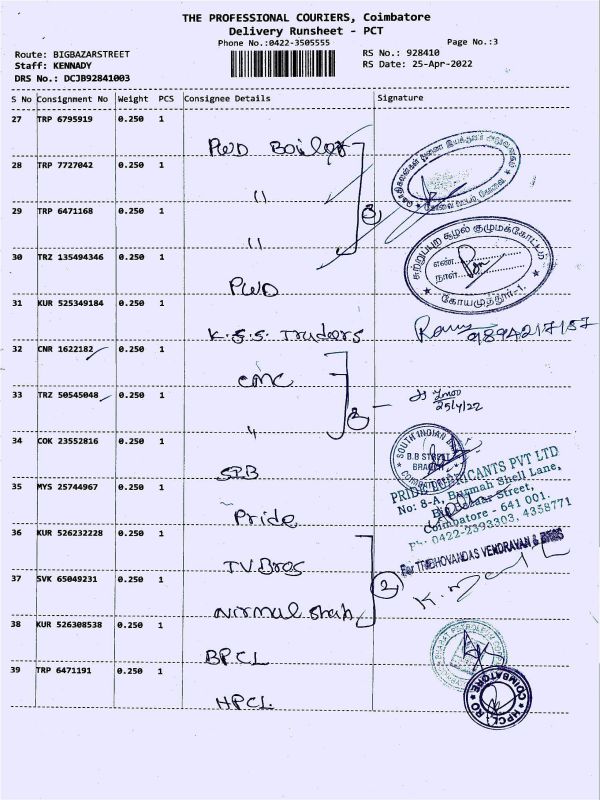 THE PROFESSIONAL COURIERS, Coimbatore
Delivery Runsheet - PCT
Phone No.:0422-3505555
Page No.:3
Route: BIGBAZARSTREET
RS No.: 928410
Staff: KENNADY
RS Date: 25-Apr-2022
DRS No.: DCJB92841003
S No Consignment No Weight PCS Consignee Details Signature
27 TRP 6795919 0.250 1
PWD Boiler
28 TRP 7727042 0.250 1
"
29 TRP 6471168 0.250 1
"
3
30 TRZ 135494346 0.250 1
PWD
சுற்றுப்புற சூழல் குழுமக்கோட்டம்
எண்
நாள்
கோயமுத்தூர்-1.
31 KUR 525349184 0.250 1
K.S.S. Traders
9894217157
32 CNR 1622182 0.250 1
CMC
33 TRZ 50545048 0.250 1
"
2
25/4/22
34 COK 23552816 0.250 1
SIB
SOUTH INDIAN
B.B STREET
BRANCH
COIMBATORE
35 MYS 25744967 0.250 1
Pride
PRIDE LUBRICANTS PVT LTD
No: 8-A, Burmah Shell Lane,
Big Bazaar Street,
Coimbatore - 641 001.
Ph: 0422-2393303, 4358771
36 KUR 526232228 0.250 1
T.V Bros
For TRIBHOVANDAS VENDRAVAN & BROS
37 SVK 65049231 0.250 1
Nirmal Shah
2
38 KUR 526308538 0.250 1
BPCL
39 TRP 6471191 0.250 1
HPCL
COIMBATORE
HPCL RO